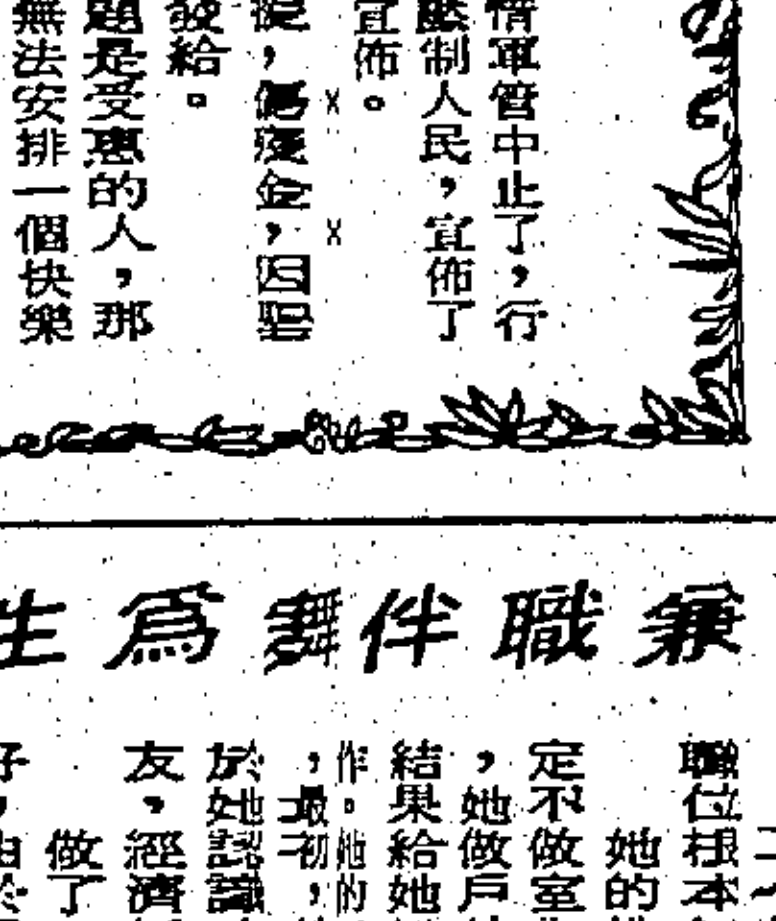 情軍管中止了，行
壓制人民，宣佈了
宣佈。
×　×
，傷殘金，因
發給。
題是受惠的人，那
無法安排一個快樂
兼職伴舞為生
職位根本
她的
定不做室
，她做戶
結果給她
作。她的
，最初，
於她認識
友，經濟
做了
好，由於